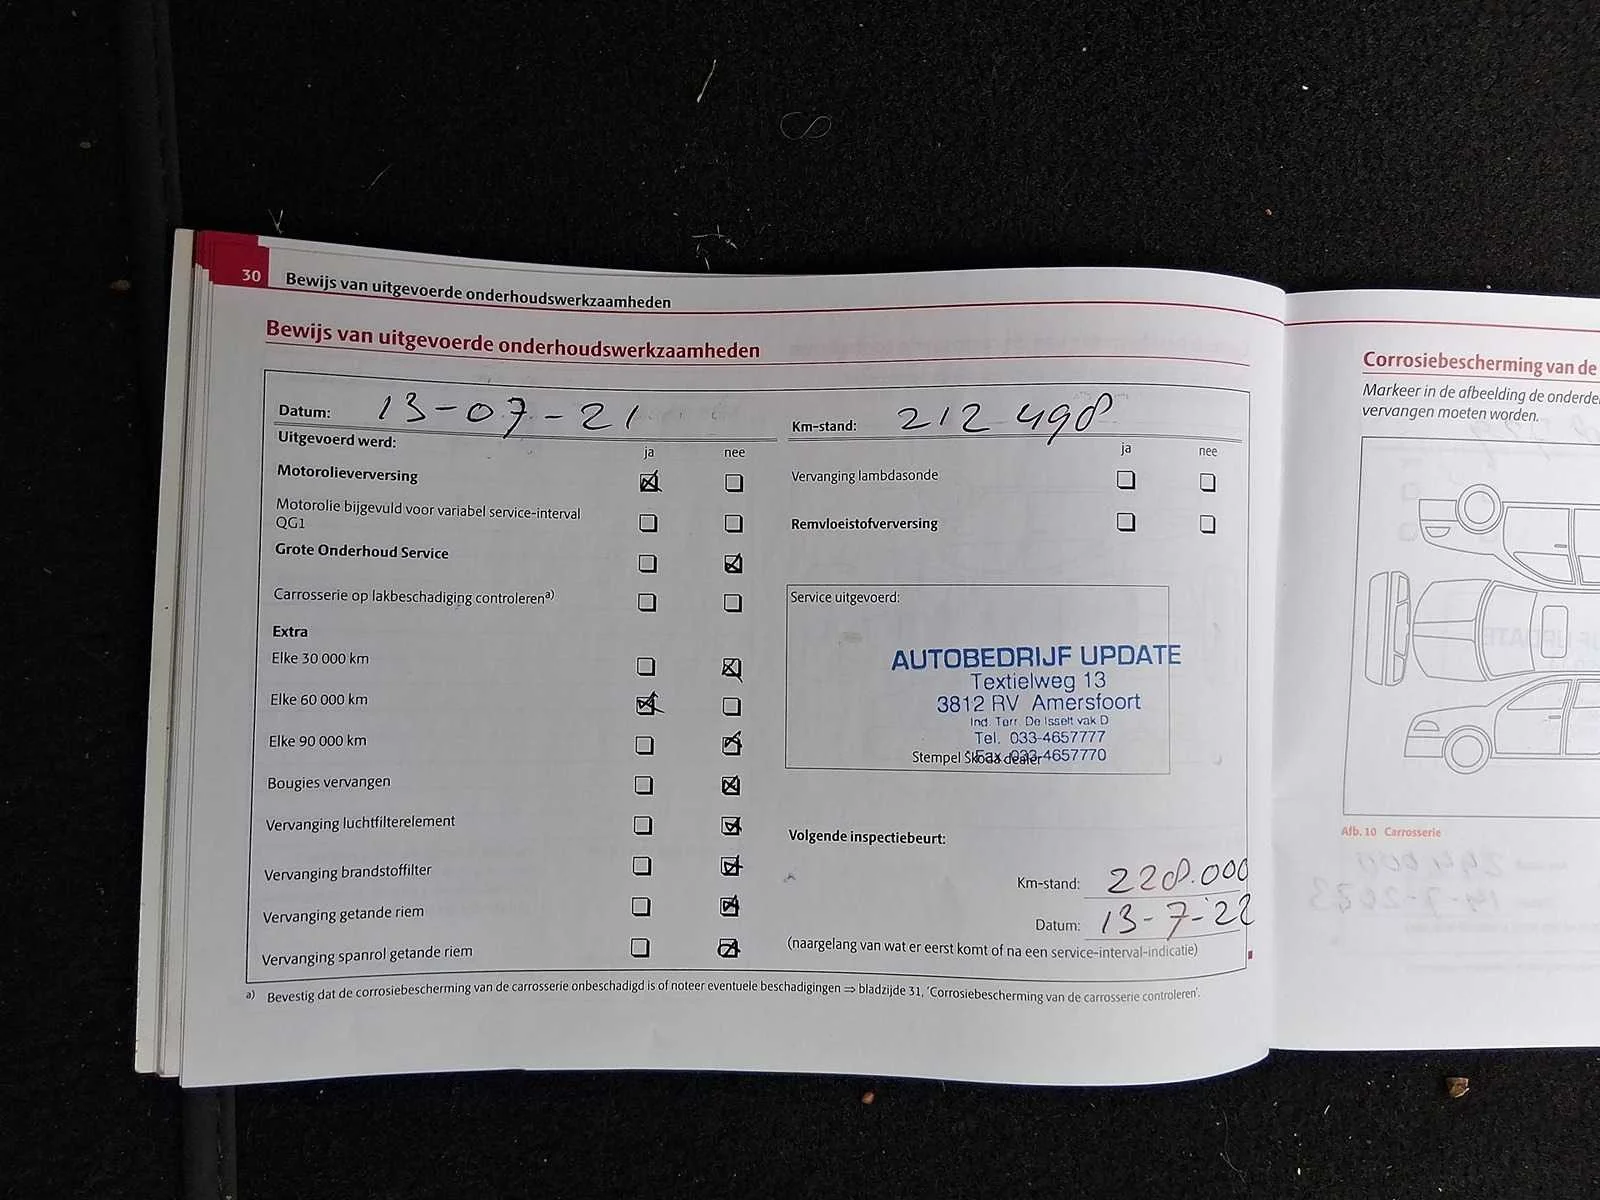 30 Bewijs van uitgevoerde onderhoudswerkzaamheden
Bewijs van uitgevoerde onderhoudswerkzaamheden
Datum: 13-07-21
Km-stand: 212 498
Uitgevoerd werd:
ja nee
ja nee
Motorolieverversing
Vervanging lambdasonde
Motorolie bijgevuld voor variabel service-interval
QG1
Remvloeistofverversing
Grote Onderhoud Service
Carrosserie op lakbeschadiging controleren a)
Extra
Elke 30 000 km
Elke 60 000 km
Elke 90 000 km
Bougies vervangen
Vervanging luchtfilterelement
Vervanging brandstoffilter
Vervanging getande riem
Vervanging spanrol getande riem
Service uitgevoerd:
AUTOBEDRIJF UPDATE
Textielweg 13
3812 RV Amersfoort
Ind. Terr. De Isselt vak D
Tel. 033-4657777
Fax 033-4657770
Stempel Škoda dealer
Volgende inspectiebeurt:
Km-stand: 228.000
Datum: 13-7-22
(naargelang van wat er eerst komt of na een service-interval-indicatie)
a) Bevestig dat de corrosiebescherming van de carrosserie onbeschadigd is of noteer eventuele beschadigingen ⇒ bladzijde 31, 'Corrosiebescherming van de carrosserie controleren'.
Corrosiebescherming van de
Markeer in de afbeelding de onderde
vervangen moeten worden.
Afb. 10 Carrosserie